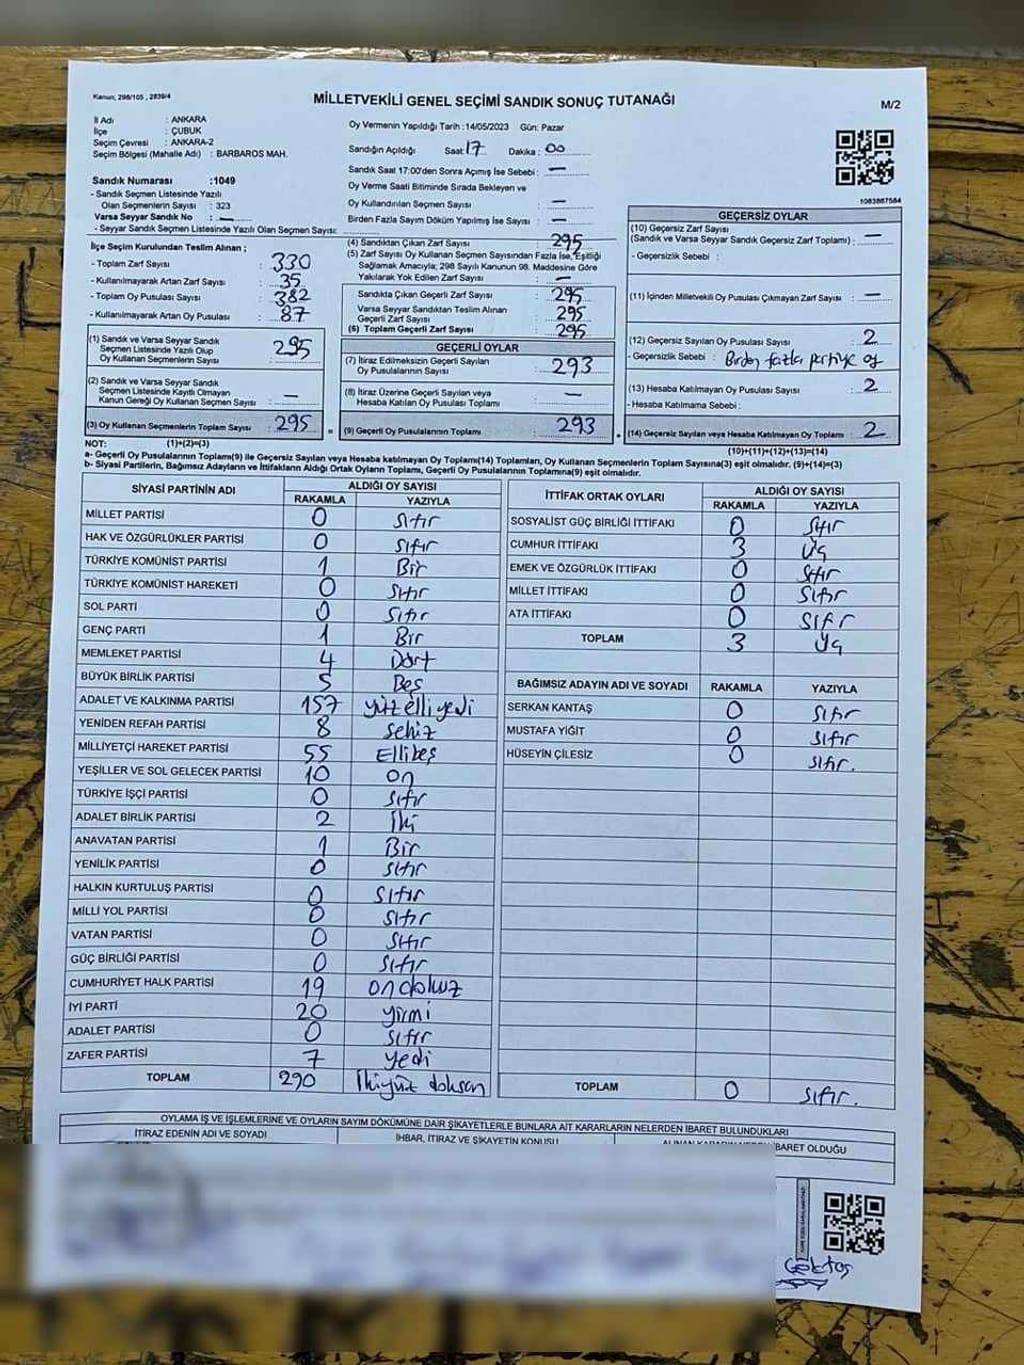 Kanun; 298/105 , 2839/4
MİLLETVEKİLİ GENEL SEÇİMİ SANDIK SONUÇ TUTANAĞI
M/2
İl Adı : ANKARA
İlçe : ÇUBUK
Seçim Çevresi : ANKARA-2
Seçim Bölgesi (Mahalle Adı) : BARBAROS MAH.
Sandık Numarası :1049
- Sandık Seçmen Listesinde Yazılı
Olan Seçmenlerin Sayısı : 323
Varsa Seyyar Sandık No : —
- Seyyar Sandık Seçmen Listesinde Yazılı Olan Seçmen Sayısı:
İlçe Seçim Kurulundan Teslim Alınan ;
- Toplam Zarf Sayısı : 330
- Kullanılmayarak Artan Zarf Sayısı : 35
- Toplam Oy Pusulası Sayısı : 382
- Kullanılmayarak Artan Oy Pusulası : 87
(1) Sandık ve Varsa Seyyar Sandık
Seçmen Listesinde Yazılı Olup
Oy Kullanan Seçmenlerin Sayısı : 295
(2) Sandık ve Varsa Seyyar Sandık
Seçmen Listesinde Kayıtlı Olmayan
Kanun Gereği Oy Kullanan Seçmen Sayısı : —
(3) Oy Kullanan Seçmenlerin Toplam Sayısı : 295
Oy Vermenin Yapıldığı Tarih :14/05/2023 Gün: Pazar
Sandığın Açıldığı Saat: 17 Dakika : 00
Sandık Saat 17:00'den Sonra Açımış İse Sebebi : —
Oy Verme Saati Bitiminde Sırada Bekleyen ve
Oy Kullandırılan Seçmen Sayısı : —
Birden Fazla Sayım Döküm Yapılmış İse Sayısı : —
(4) Sandıktan Çıkan Zarf Sayısı : 295
(5) Zarf Sayısı Oy Kullanan Seçmen Sayısından Fazla İse, Eşitliği
Sağlamak Amacıyla; 298 Sayılı Kanunun 98. Maddesine Göre
Yakılarak Yok Edilen Zarf Sayısı : —
Sandıkta Çıkan Geçerli Zarf Sayısı : 295
Varsa Seyyar Sandıktan Teslim Alınan
Geçerli Zarf Sayısı : 295
(6) Toplam Geçerli Zarf Sayısı : 295
GEÇERLİ OYLAR
(7) İtiraz Edilmeksizin Geçerli Sayılan
Oy Pusulalarının Sayısı : 293
(8) İtiraz Üzerine Geçerli Sayılan veya
Hesaba Katılan Oy Pusulası Toplamı : —
= (9) Geçerli Oy Pusulalarının Toplamı : 293
1083867584
GEÇERSİZ OYLAR
(10) Geçersiz Zarf Sayısı
(Sandık ve Varsa Seyyar Sandık Geçersiz Zarf Toplamı) : —
- Geçersizlik Sebebi :
(11) İçinden Milletvekili Oy Pusulası Çıkmayan Zarf Sayısı : —
(12) Geçersiz Sayılan Oy Pusulası Sayısı : 2
- Geçersizlik Sebebi : Birden fazla partiye oy
(13) Hesaba Katılmayan Oy Pusulası Sayısı : 2
- Hesaba Katılmama Sebebi :
+ (14) Geçersiz Sayılan veya Hesaba Katılmayan Oy Toplamı : 2
NOT: (1)+(2)=(3) (10)+(11)+(12)+(13)=(14)
a- Geçerli Oy Pusulalarının Toplam(9) ile Geçersiz Sayılan veya Hesaba Katılmayan Oy Toplam(14) Toplamları, Oy Kullanan Seçmenlerin Toplam Sayısına(3) eşit olmalıdır. (9)+(14)=(3)
b- Siyasi Partilerin, Bağımsız Adayların ve İttifakların Aldığı Ortak Oyların Toplamı, Geçerli Oy Pusulalarının Toplamına(9) eşit olmalıdır.
SİYASİ PARTİNİN ADI ALDIĞI OY SAYISI
RAKAMLA YAZIYLA
MİLLET PARTİSİ 0 Sıfır
HAK VE ÖZGÜRLÜKLER PARTİSİ 0 Sıfır
TÜRKİYE KOMÜNİST PARTİSİ 1 Bir
TÜRKİYE KOMÜNİST HAREKETİ 0 Sıfır
SOL PARTİ 0 Sıfır
GENÇ PARTİ 1 Bir
MEMLEKET PARTİSİ 4 Dört
BÜYÜK BİRLİK PARTİSİ 5 Beş
ADALET VE KALKINMA PARTİSİ 157 yüz elli yedi
YENİDEN REFAH PARTİSİ 8 Sekiz
MİLLİYETÇİ HAREKET PARTİSİ 55 Ellibeş
YEŞİLLER VE SOL GELECEK PARTİSİ 10 on
TÜRKİYE İŞÇİ PARTİSİ 0 Sıfır
ADALET BİRLİK PARTİSİ 2 İki
ANAVATAN PARTİSİ 1 Bir
YENİLİK PARTİSİ 0 Sıfır
HALKIN KURTULUŞ PARTİSİ 0 Sıfır
MİLLİ YOL PARTİSİ 0 Sıfır
VATAN PARTİSİ 0 Sıfır
GÜÇ BİRLİĞİ PARTİSİ 0 Sıfır
CUMHURİYET HALK PARTİSİ 19 ondokuz
İYİ PARTİ 20 yirmi
ADALET PARTİSİ 0 Sıfır
ZAFER PARTİSİ 7 yedi
TOPLAM 290 İkiyüz doksan
İTTİFAK ORTAK OYLARI ALDIĞI OY SAYISI
RAKAMLA YAZIYLA
SOSYALİST GÜÇ BİRLİĞİ İTTİFAKI 0 Sıfır
CUMHUR İTTİFAKI 3 Üç
EMEK VE ÖZGÜRLÜK İTTİFAKI 0 Sıfır
MİLLET İTTİFAKI 0 Sıfır
ATA İTTİFAKI 0 Sıfır
TOPLAM 3 Üç
BAĞIMSIZ ADAYIN ADI VE SOYADI RAKAMLA YAZIYLA
SERKAN KANTAŞ 0 Sıfır
MUSTAFA YİĞİT 0 Sıfır
HÜSEYİN ÇİLESİZ 0 Sıfır.
TOPLAM 0 Sıfır.
OYLAMA İŞ VE İŞLEMLERİNE VE OYLARIN SAYIM DÖKÜMÜNE DAİR ŞİKAYETLERLE BUNLARA AİT KARARLARIN NELERDEN İBARET BULUNDUKLARI
İTİRAZ EDENİN ADI VE SOYADI İHBAR, İTİRAZ VE ŞİKAYETİN KONUSU ALINAN KARARIN NEDEN İBARET OLDUĞU
Göktaş